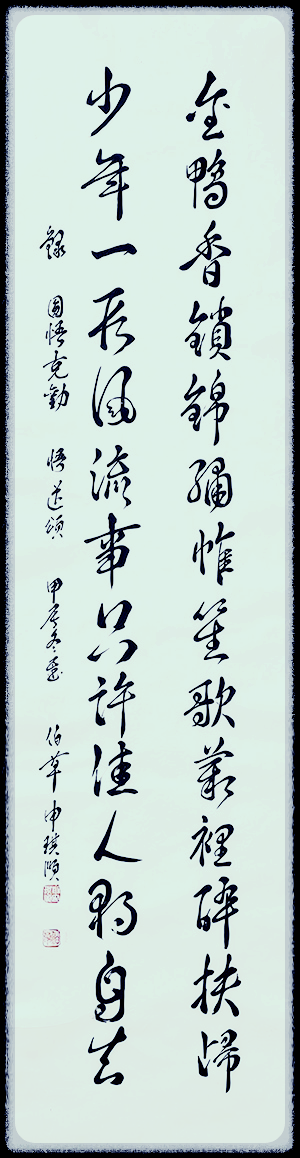 金鴨香鎖錦繡帷笙歌叢裡醉扶歸
少年一段風流事只許佳人獨自知
錄 圓悟克勤 悟道頌 甲辰冬 伯草 申 順